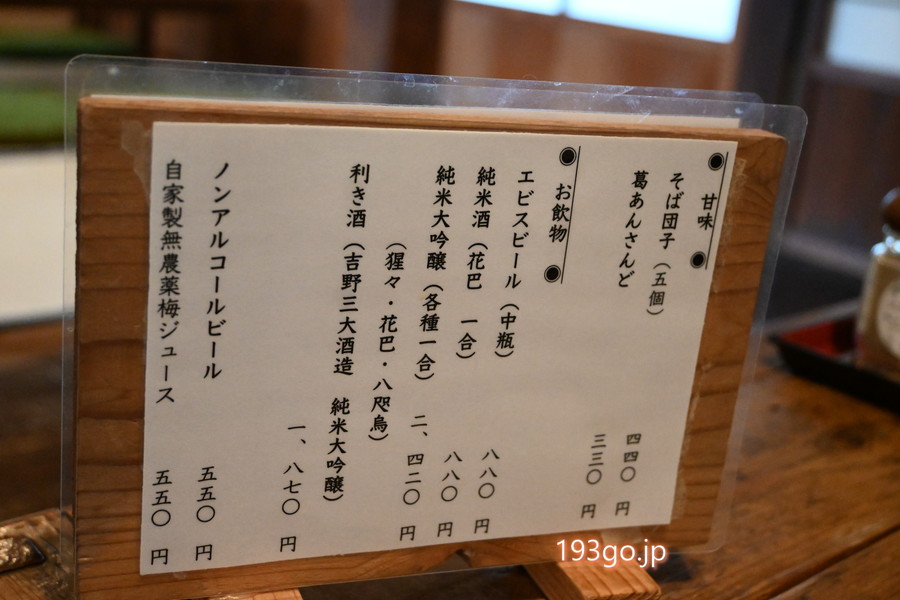 ● 甘味 ●
そば団子（五個） 四四〇 円
葛あんさんど 三三〇 円
● お飲物 ●
エビスビール（中瓶） 八八〇 円
純米酒（花巴 一合） 八八〇 円
純米大吟醸（各種一合） 二、四二〇 円
（猩々・花巴・八咫烏）
利き酒（吉野三大酒造 純米大吟醸）
一、八七〇 円
ノンアルコールビール 五五〇 円
自家製無農薬梅ジュース 五五〇 円
193go.jp